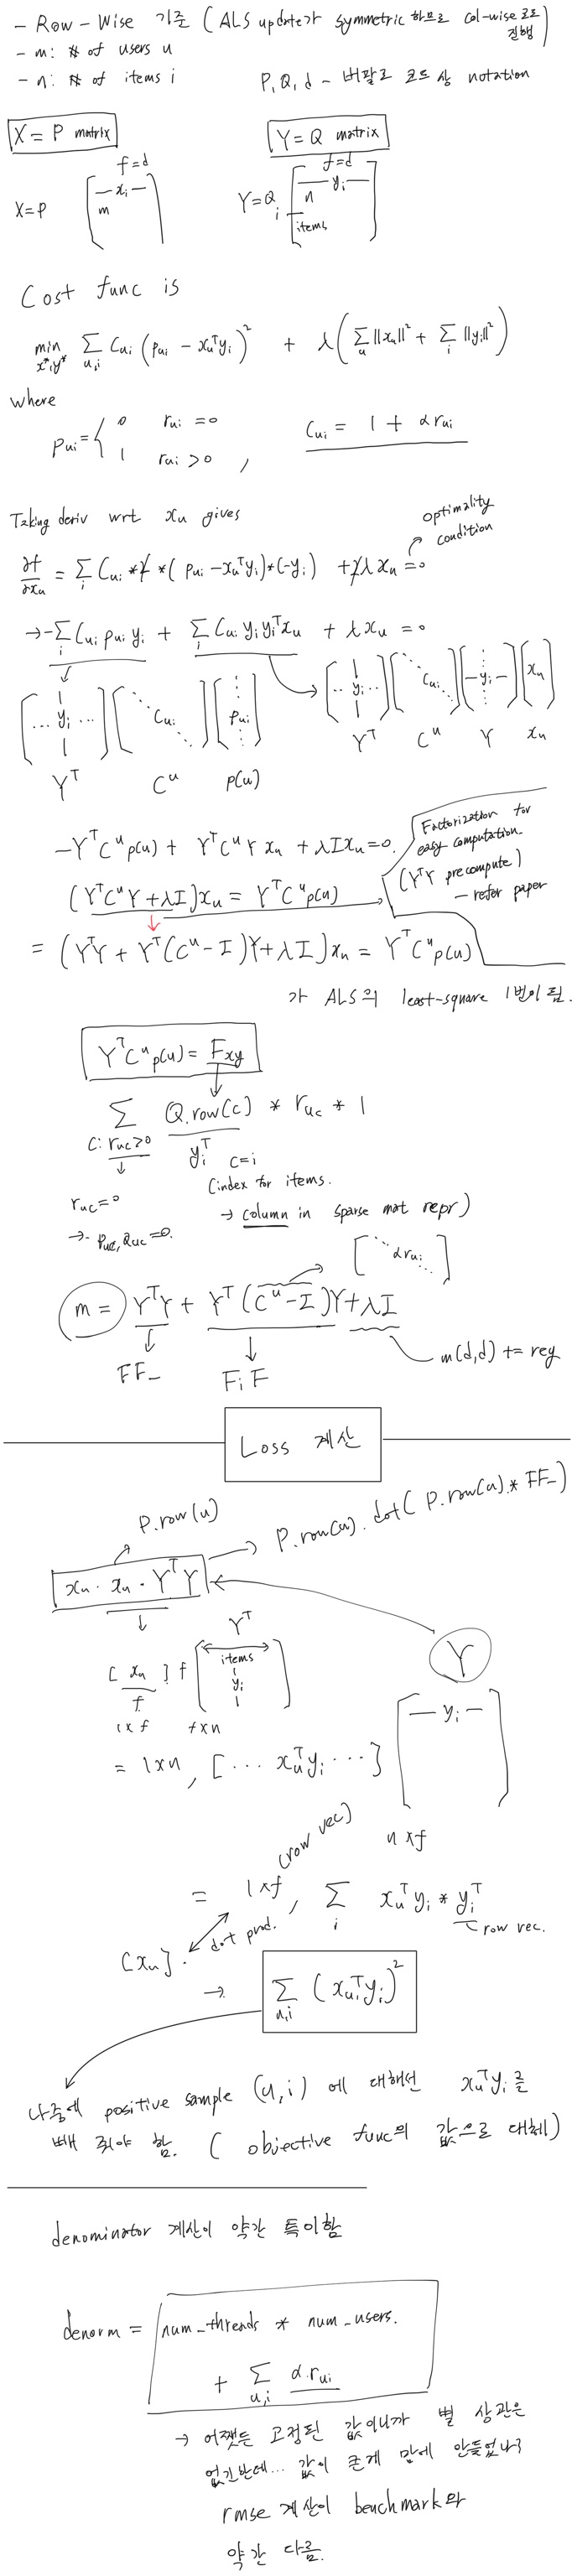 - Row-Wise 기준 (ALS update가 symmetric 하므로 col-wise 코드로 진행)
- m: # of users u
- n: # of items i
P, Q, d - 버팔로 코드 상 notation
X = P matrix
Y = Q matrix
f=d
f=d
X=P [ — x_i — m ]
Y=Q_i [ — y_i — n items ]
Cost func is
min x*,y* Σ_{u,i} C_ui (p_ui - x_u^T y_i)^2 + λ(Σ_u ||x_u||^2 + Σ_i ||y_i||^2)
where
p_ui = { 0 r_ui = 0
1 r_ui > 0 ,
C_ui = 1 + α r_ui
Taking deriv wrt x_u gives
optimality condition
∂f/∂x_u = Σ_i C_ui * 2 * (p_ui - x_u^T y_i) * (-y_i) + 2λ x_u = 0
→ -Σ_i C_ui p_ui y_i + Σ_i C_ui y_i y_i^T x_u + λ x_u = 0
[... y_i ...] [⋱ C_ui ⋱] [⋮ p_ui ⋮] → [.. y_i ..] [⋱ C_ui ⋱] [— y_i —] [x_u]
Y^T C^u p(u) Y^T C^u Y x_u
-Y^T C^u p(u) + Y^T C^u Y x_u + λ I x_u = 0.
Factorization for easy computation.
(Y^T Y precompute)
- refer paper
(Y^T C^u Y + λI) x_u = Y^T C^u p(u)
= (Y^T Y + Y^T (C^u - I) Y + λI) x_u = Y^T C^u p(u)
가 ALS의 least-square 1번이 됨.
Y^T C^u p(u) = F_xy
Σ_{c: r_uc>0} Q.row(c) * r_uc * 1
y_i^T c=i
(index for items.
→ column in sparse mat repr)
r_uc = 0
→ p_uc, a_uc = 0.
[⋱ α r_ui ⋱]
m = Y^T Y + Y^T (C^u - I) Y + λI
FF_ FiF m(d,d) += reg
Loss 계산
P.row(u)
P.row(u).dot(P.row(u) * FF_)
x_u · x_u · Y^T Y
Y^T
Y
[x_u] f [items y_i]
f
1xf fxn
[— y_i —]
= 1xn, [... x_u^T y_i ...]
n xf
(row vec)
= 1xf, Σ_i x_u^T y_i * y_i^T
row vec.
[x_u]. dot prod.
→ Σ_{u,i} (x_u^T y_i)^2
나중에 positive sample (u,i) 에 대해선 x_u^T y_i를
빼 줘야 함. ( objective func의 값으로 대체)
denominator 계산이 약간 특이함
denorm = num_threads * num_users.
+ Σ_{u,i} α.r_ui
→ 어쨌든 고정된 값이니까 별 상관은
없긴한데... 값이 큰게 맘에 안들었나?
rmse 계산이 benchmark와
약간 다름.